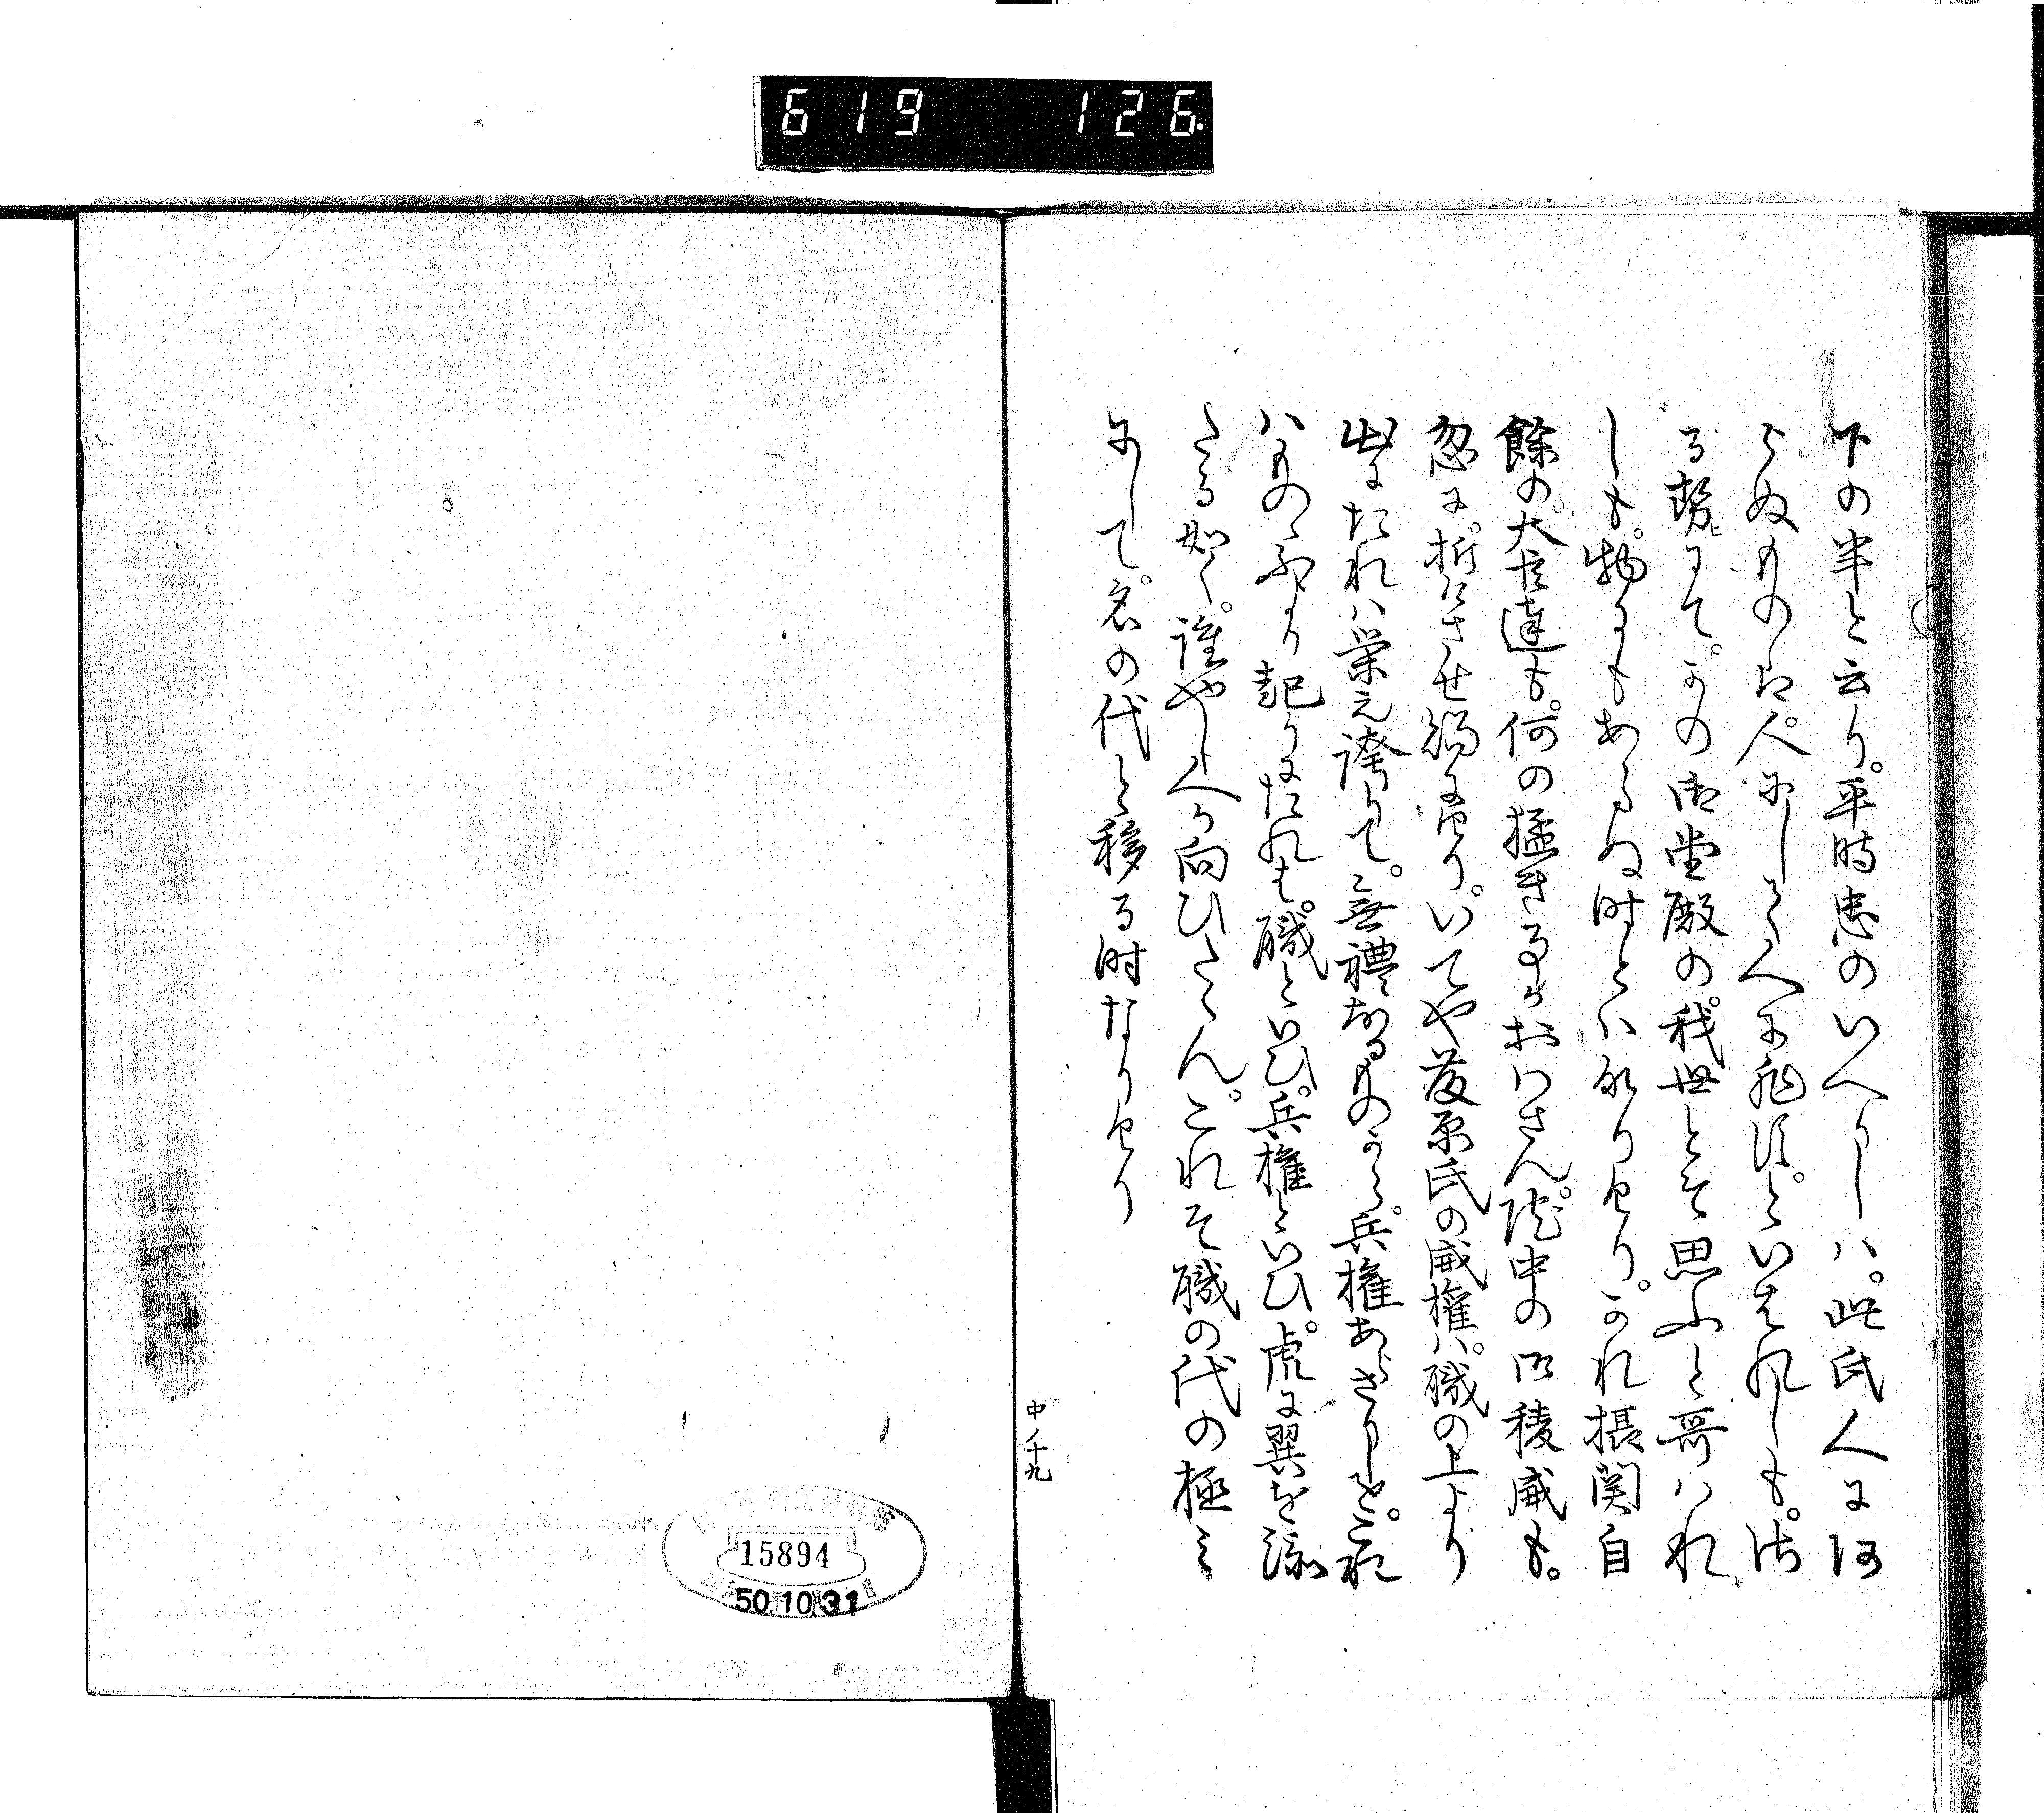 619 126
下の半と云り。平時忠のいへりしハ。此氏人にあ
らぬものは人にしてくへに非ず。といはれしも。さ
る勢にて。かの御堂殿の。我世とぞ思ふと哥ハれ
しも。物にもあらぬ時とハなりけり。かれ摂関自
餘の。大臣達も。何の猛き事かおハさん。院中の御稜威も。
忽に。折けさせ給ひけり。いてや藤原氏の威権ハ。職の上より
出にたれハ栄え誇りて。無禮なるものから。兵権あらざりしを。これ
ハものゝふより起りにたれば。職といひ。兵権といひ。虎に翼を添
たる如く。誰やし人か向ひたらん。これそ職の代の極ミ
にして。名の代と移る時なりけり
中ノ十九
15894
50.10.31